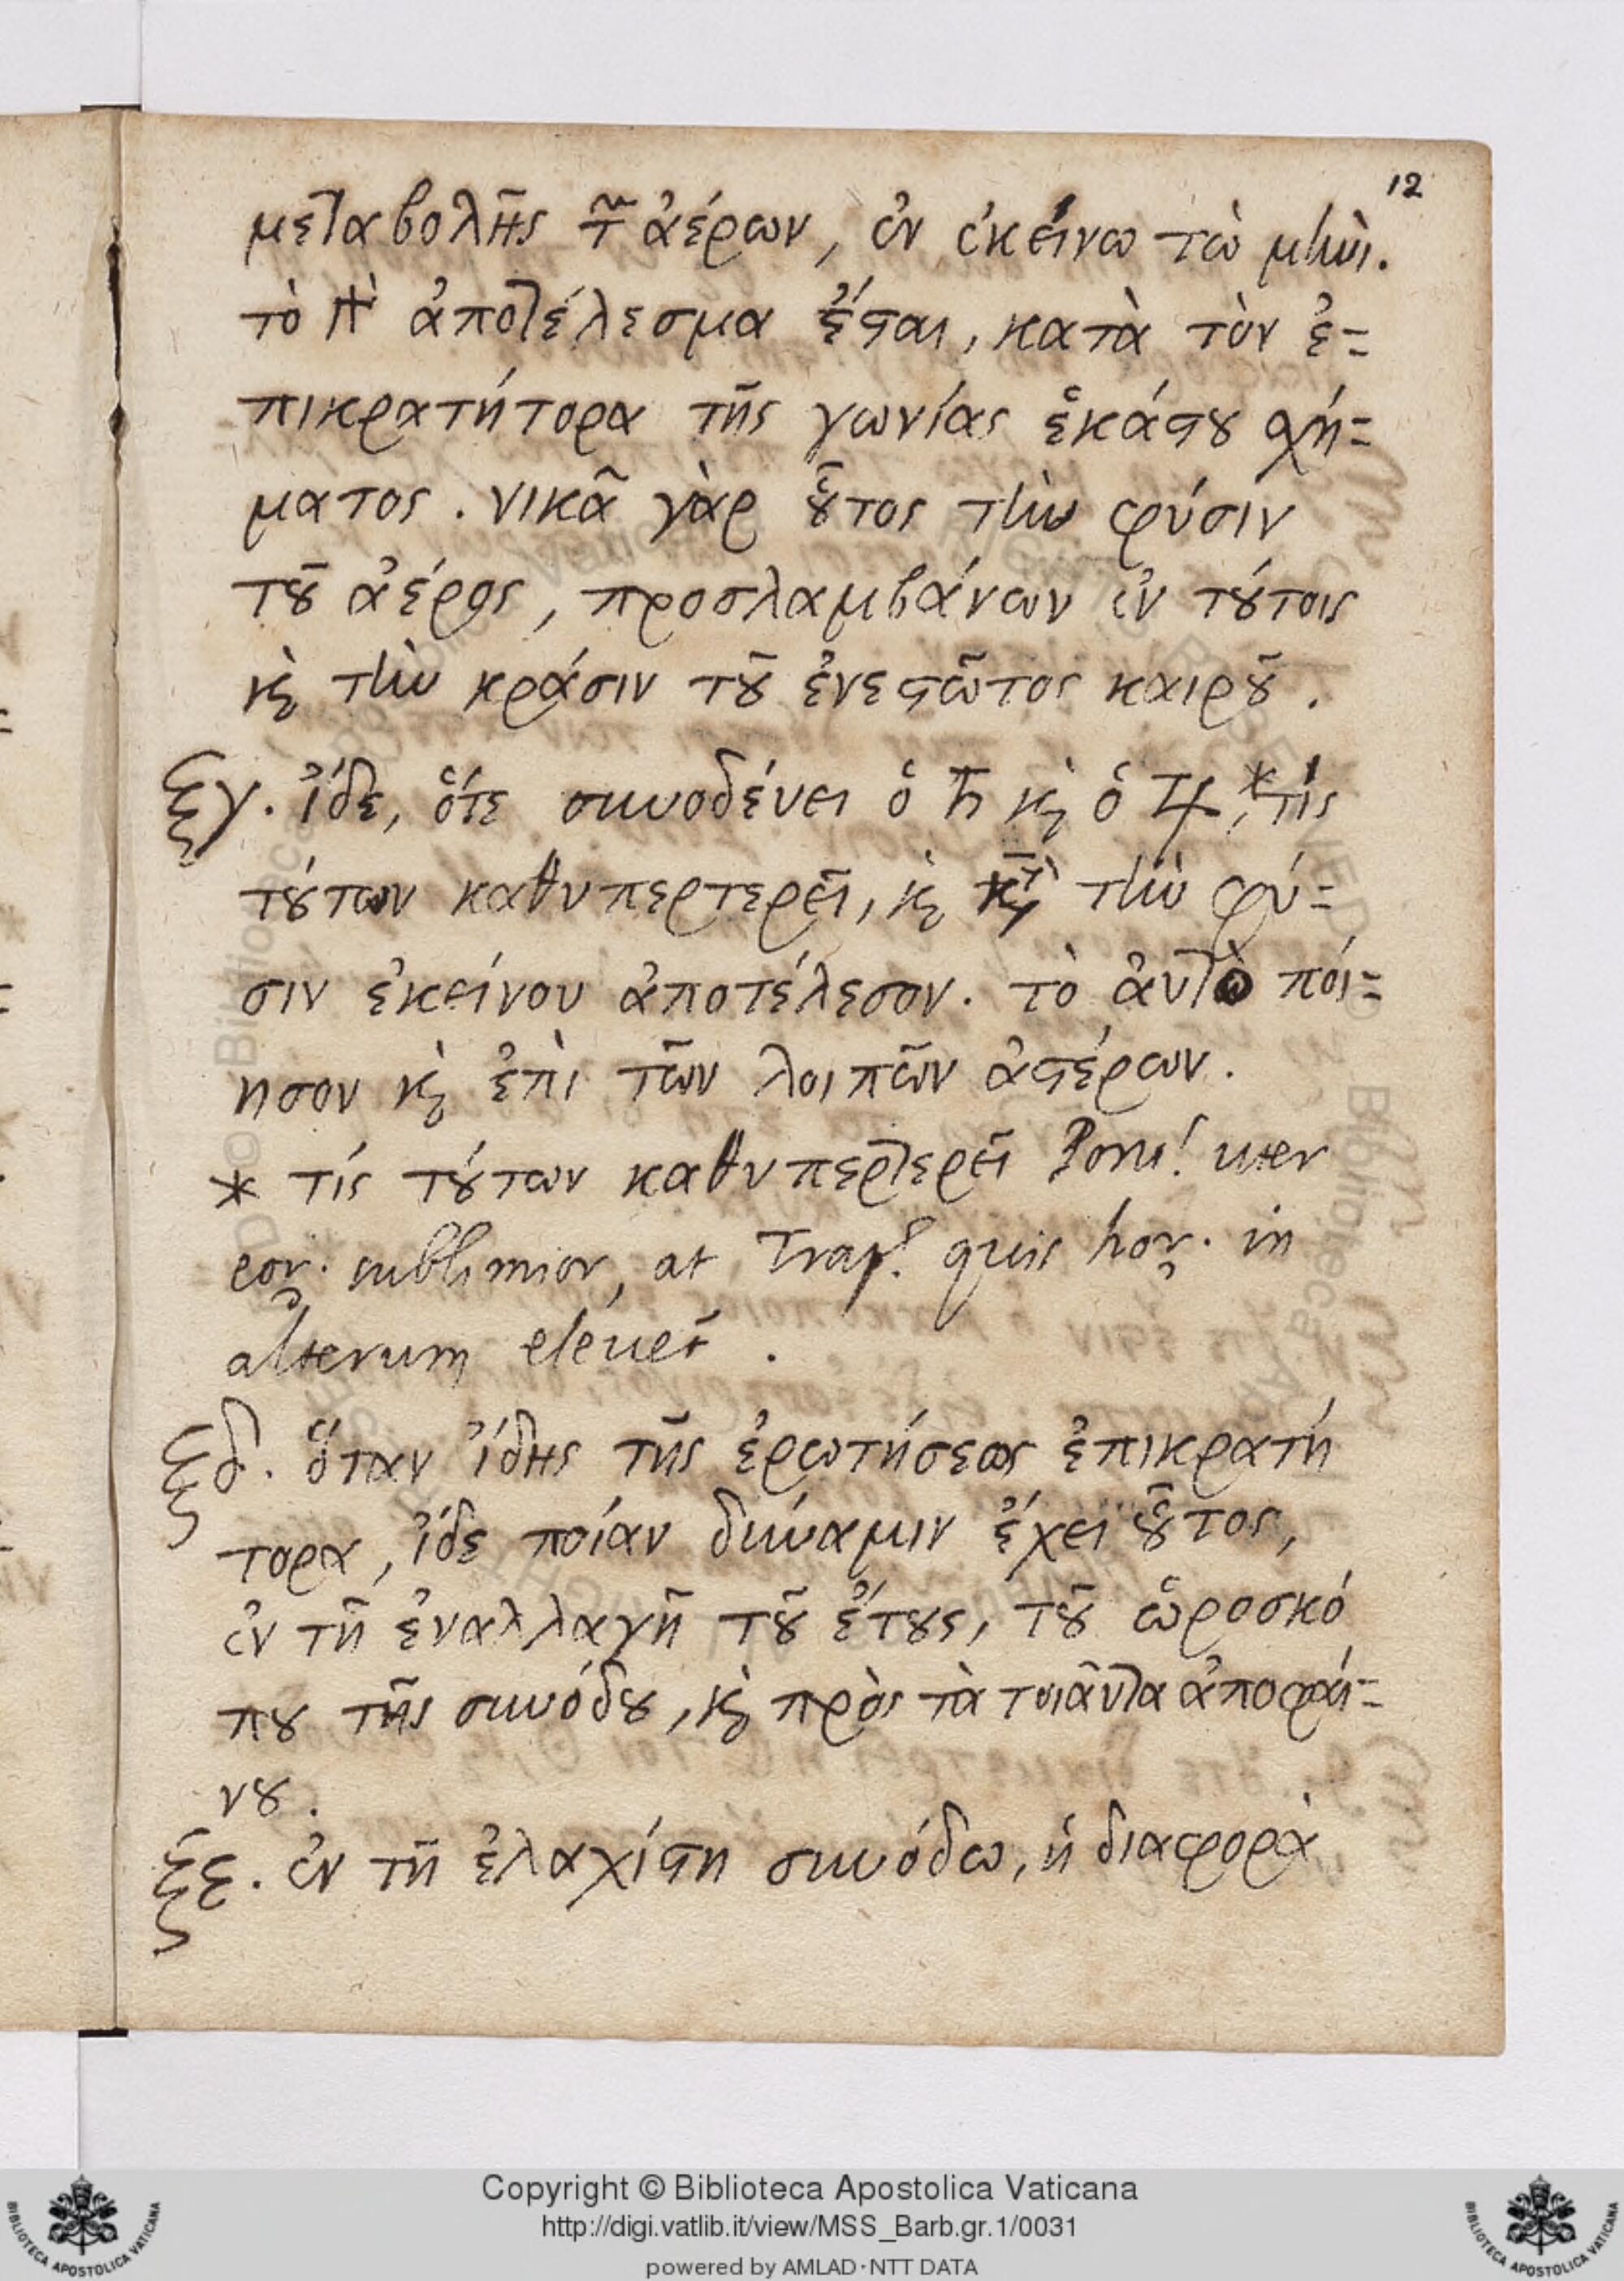 12
μεταβολῆς τ̃ ἀέρων, ἐν ἐκείνω τῶ μὴνι.
τὸ δὲ ἀποτέλεσμα ἔσται, κατὰ τὸν ἐ=
πικρατήτορα τῆς γωνίας ἑκάστου σχή=
ματος. νικᾶ γὰρ οὗτος τὴν φύσιν
τοῦ ἀέρος, προσλαμβάνων ἐν τούτοις
καὶ τὴν κράσιν τοῦ ἐνεστῶτος καιροῦ.
ξγ. ἴδε, ὅτε συνοδεύει ὁ ♄ καὶ ὁ ♃,* τίς
τούτων καθυπερτερεῖ, καὶ τὴν φύ=
σιν ἐκείνου ἀποτέλεσον. τὸ ἀυτὸ πόι=
ησον καὶ ἐπὶ τῶν λοιπῶν ἀστέρων.
* τίς τούτων καθυπερτερεῖ Pont! uter
eor. sublimior, at Trap! quis hor. in
alterum eleuet̃.
ξδ. ὅταν ἴδης τῆς ἐρωτήσεως ἐπικρατή
τορα, ἴδε ποίαν δύναμιν ἔχει οὗτος,
ἐν τῆ ἐναλλαγῆ τοῦ ἔτους, τοῦ ὡροσκό
που τῆς συνόδου, καὶ πρὸς τὰ τοιᾶυτα ἀποφάι=
νου.
ξε. ἐν τῆ ἐλαχίστη συνόδω, ἡ διαφορὰ
Copyright © Biblioteca Apostolica Vaticana
http://digi.vatlib.it/view/MSS_Barb.gr.1/0031
powered by AMLAD·NTT DATA
BIBLIOTECA APOSTOLICA VATICANA
BIBLIOTECA APOSTOLICA VATICANA